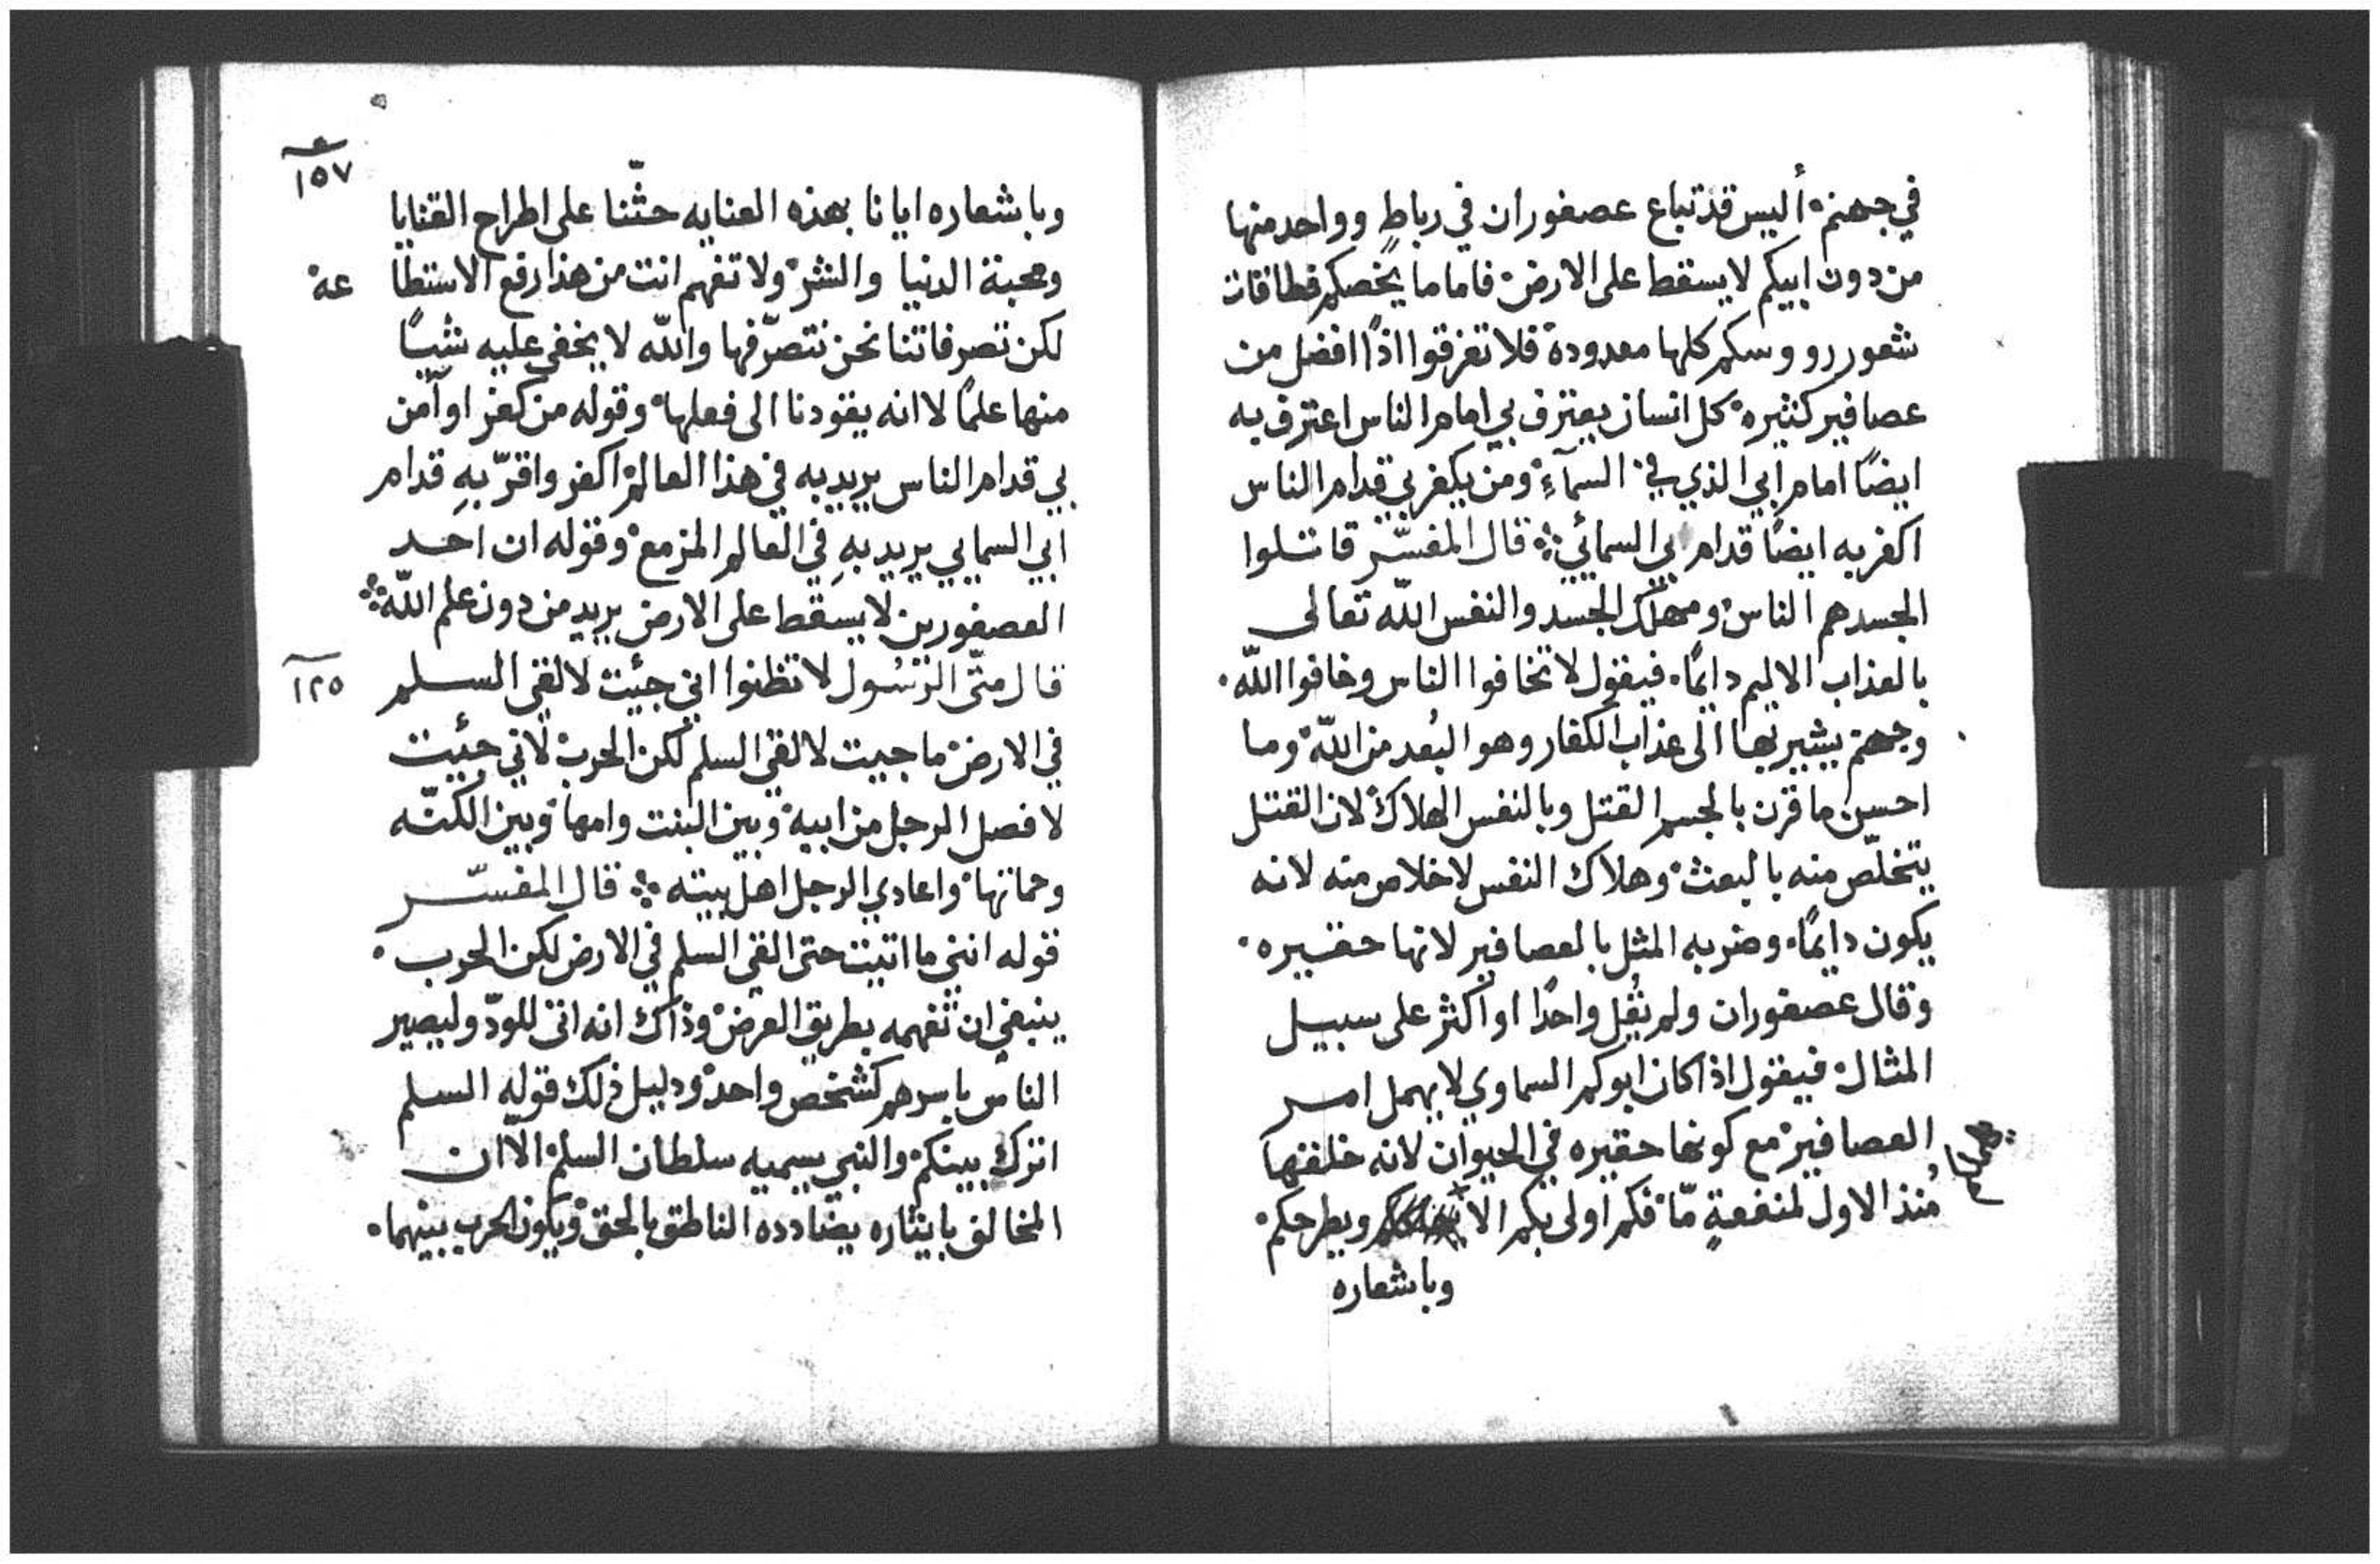 في جهنم ْ أليس قد تباع عصفوران في رباطٍ وواحد منها
من دون ابيكم لا يسقط على الارض ْ فاما ما يخصكم فطاقات
شعور رووسكم كلها معدودة فلا تفرقوا اذًا افضل من
عصافير كثيره ْ كل انسان يعترف بي امام الناس اعترف به
ايضًا امام ابي الذي في السمآءِ ْ ومن يكفر بي قدام الناس
اكفر به ايضًا قدام ابي السمائي ܀ قال المفسّر قاتلوا
الجسد هم الناس ْ ومهلك الجسد والنفس الله تعالى
بالعذاب الاليم دايمًا ۰ فيقول لا تخافوا الناس وخافوا اللّه ۰
وجهنم يشير بها الى عذاب الكفار وهو البُعد من اللّه ْ وما
احسن ما قرن بالجسم القتل وبالنفس الهلاك ْ لان القتل
يتخلّص منه بالبعث ْ وهلاك النفس لا خلاص منه لانه
يكون دايمًا ۰ وضربه المثل بالعصافير لانها حقيره ۰
وقال عصفوران ولم يقُل واحدًا او اكثر على سبيل
المثال ْ فيقول اذا كان ابوكم السماوي لا يهمل امر
العصافير ْ مع كونها حقيره في الحيوان لانه خلقها
مُنذ الاول لمنفعةٍ مّا ْ فكم اولى بكم الا ويطرحكم ْ
وباشعاره
١٥٧
وباشعاره ايانا بهذه العنايه حثّنا على اطراح القنايا
ومحبة الدنيا والشر ْ ولا تفهم انت من هذا رفع الاستطا عة
لكن تصرفاتنا نحن نتصرّفها واللّه لا يخفى عليه شيًا
منها علمًا لا انه يقودنا الى فعلها ْ وقوله من كفر او آمن
بي قدام الناس يريد به في هذا العالم ْ اكفر واقرّ بهِ قدام
ابي السمايي يريد بهِ في العالم المزمع ْ وقوله ان احد
العصفورين لا يسقط على الارض يريد من دون علم اللّه ܀
١٢٥
قال متّى الرسُول لا تظنوا اني جئيت لالقي السلم
في الارض ْ ما جييت لالقي السلم لكن الحرب ْ لاني جئيت
لافصل الرجل من ابيه ْ وبين البنت وامها ْ وبين الكنّه
وحماتها ْ واعادي الرجل اهل بيته ܀ قال المفسّر
قوله انني ما اتيت حتى القي السلم في الارض لكن الحرب ۰
ينبغي ان تفهمه بطريق العرض ْ وذاك انه اتى للودّ وليصير
الناس باسرهم كشخص واحد ْ ودليل ذلك قوله السلم
اترك بينكم ْ والنبي يسميه سلطان السلم ْ الّا ان
المخالف بايثاره يضادده الناطق بالحق ْ ويكون الحرب بينهما ۰